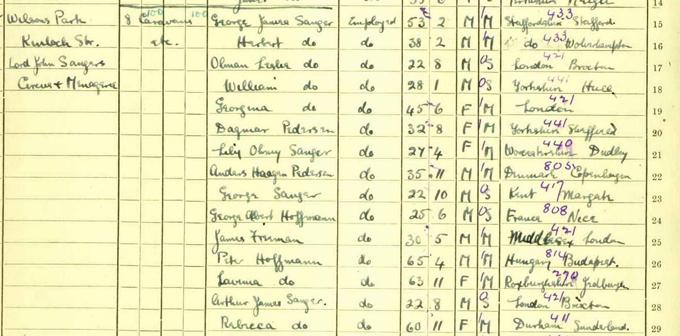 14
Wilsons Park 8 Caravans 100 100 George James Sanger Employed 53 2 M M Staffordshire Stafford 433 15
Kinloch Str. etc. Herbert do do 38 2 M M do Wolverhampton 433 16
Lord John Sangers Olman Leslie do do 22 8 M S London Brixton 421 17
Circus & Menagerie William do do 28 1 M S Yorkshire Hull 441 18
Georgina do do 45 6 F M London 421 19
Dagmar Pedersen do 32 8 F M Yorkshire Sheffield 441 20
Lily Ohmy Sanger do 27 4 F M Worcestershire Dudley 440 21
Anders Haagen Pedersen do 35 11 M M Denmark Copenhagen 805 22
George Sanger do 22 10 M S Kent Margate 417 23
George Albert Hoffmann do 25 6 M S France Nice 808 24
James Freeman do 30 5 M M Middlesex London 421 25
Peter Hoffmann do 65 4 M M Hungary Budapest. 814 26
Lavinia do do 63 11 F M Roxburghshire Jedburgh 290 27
Arthur James Sanger. do 22 8 M S London Brixton 421 28
Rebecca do do 60 11 F M Durham Sunderland. 411 29